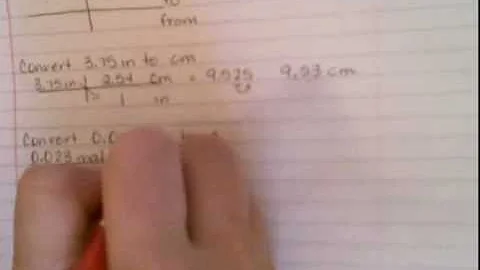 to
from
Convert 3.75 in to cm
3.75 in 2.54 cm = 9.525 9.53 cm
1 in
Convert 0.0
0.023 mol